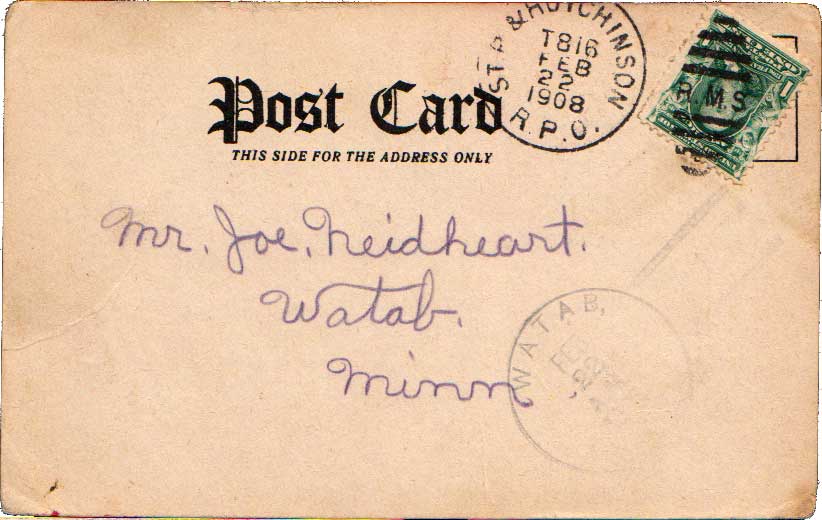 ST. P. & HUTCHINSON
T816
FEB
22
1908
R.P.O.
R.M.S
1
Post Card
THIS SIDE FOR THE ADDRESS ONLY
Mr. Joe. Neidheart.
Watab.
Minn.
WATAB,
FEB